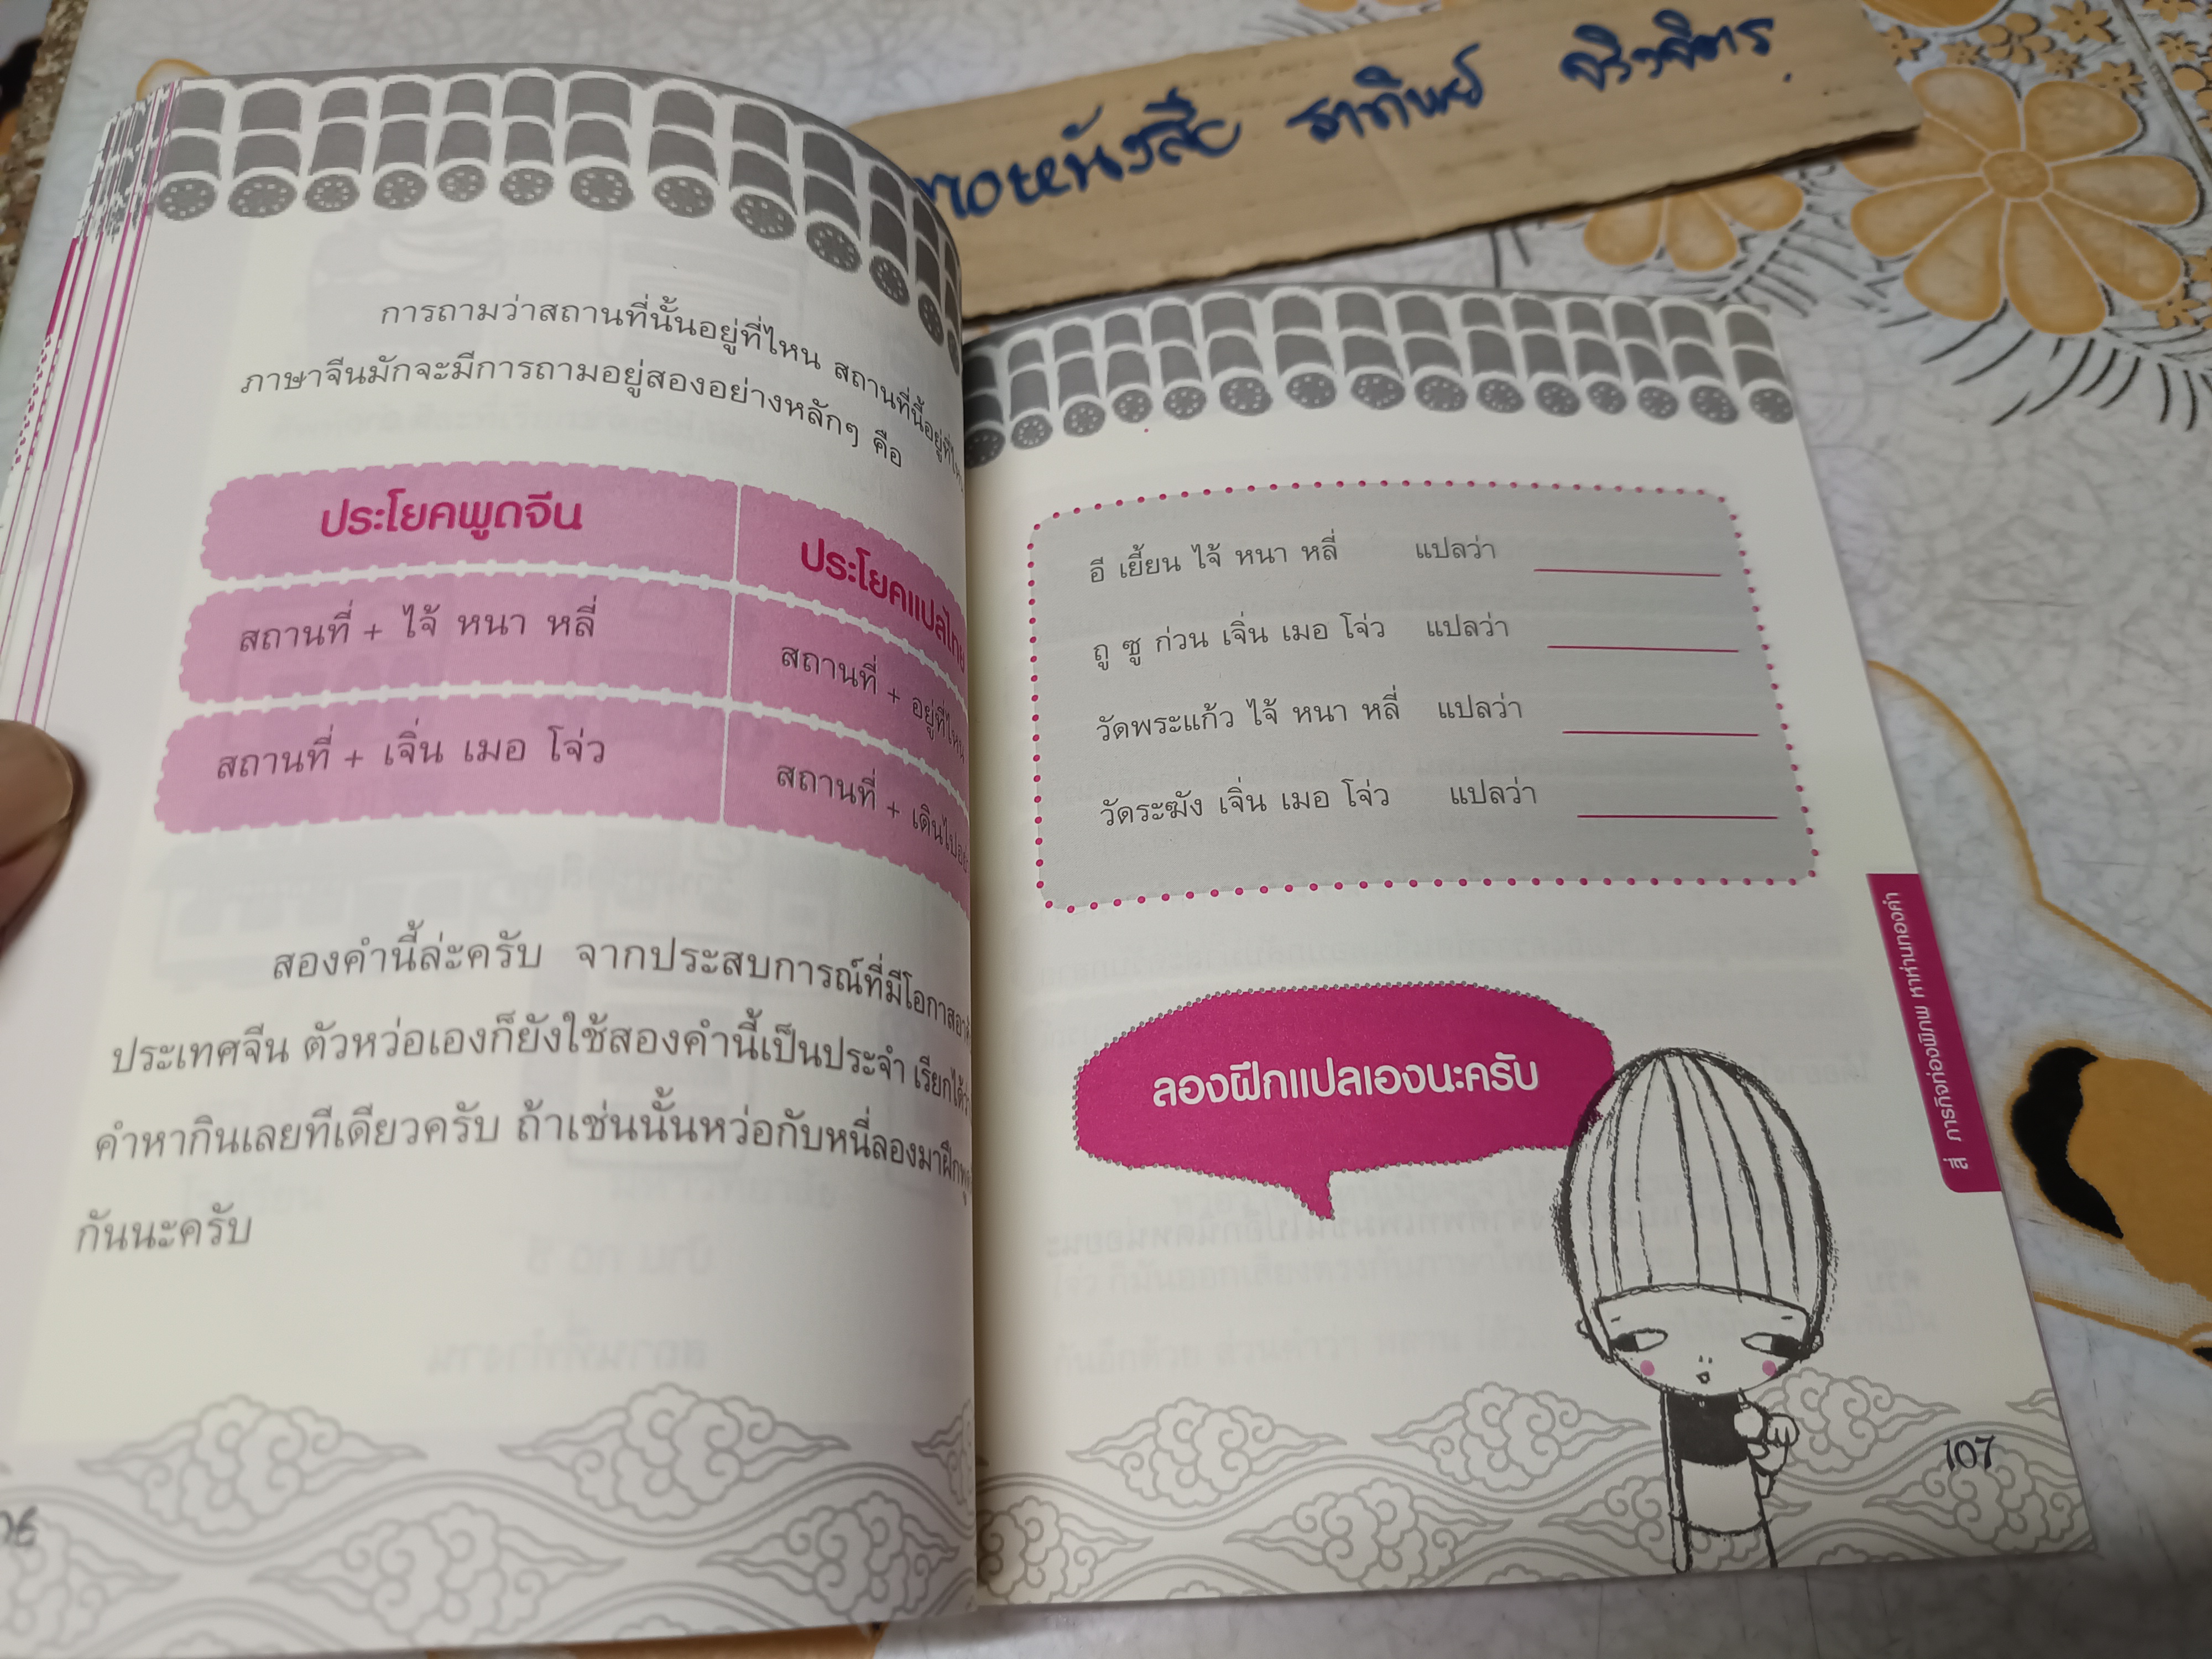 การถามว่าสถานที่นั้นอยู่ที่ไหน สถานที่นี้อยู่ที่ไหน
ภาษาจีนมักจะมีการถามอยู่สองอย่างหลักๆ คือ
ประโยคพูดจีน ประโยคแปลไทย
สถานที่ + ไจ้ หนา หลี่ สถานที่ + อยู่ที่ไหน
สถานที่ + เจิ่น เมอ โจ่ว สถานที่ + เดินไป
สองคำนี้ล่ะครับ จากประสบการณ์ที่มีโอกาส
ประเทศจีน ตัวหว่อเองก็ยังใช้สองคำนี้เป็นประจำ เรียกได้
คำหากินเลยทีเดียวครับ ถ้าเช่นนั้นหว่อกับหนี่ลองมาฝึก
กันนะครับ
หนังสือ
อี เยี้ยน ไจ้ หนา หลี่ แปลว่า
ถู ซู ก่วน เจิ่น เมอ โจ่ว แปลว่า
วัดพระแก้ว ไจ้ หนา หลี่ แปลว่า
วัดระฆัง เจิ่น เมอ โจ่ว แปลว่า
ลองฝึกแปลเองนะครับ
สี่ ภารกิจท่องพิภพ หาห่านทองคำ
107